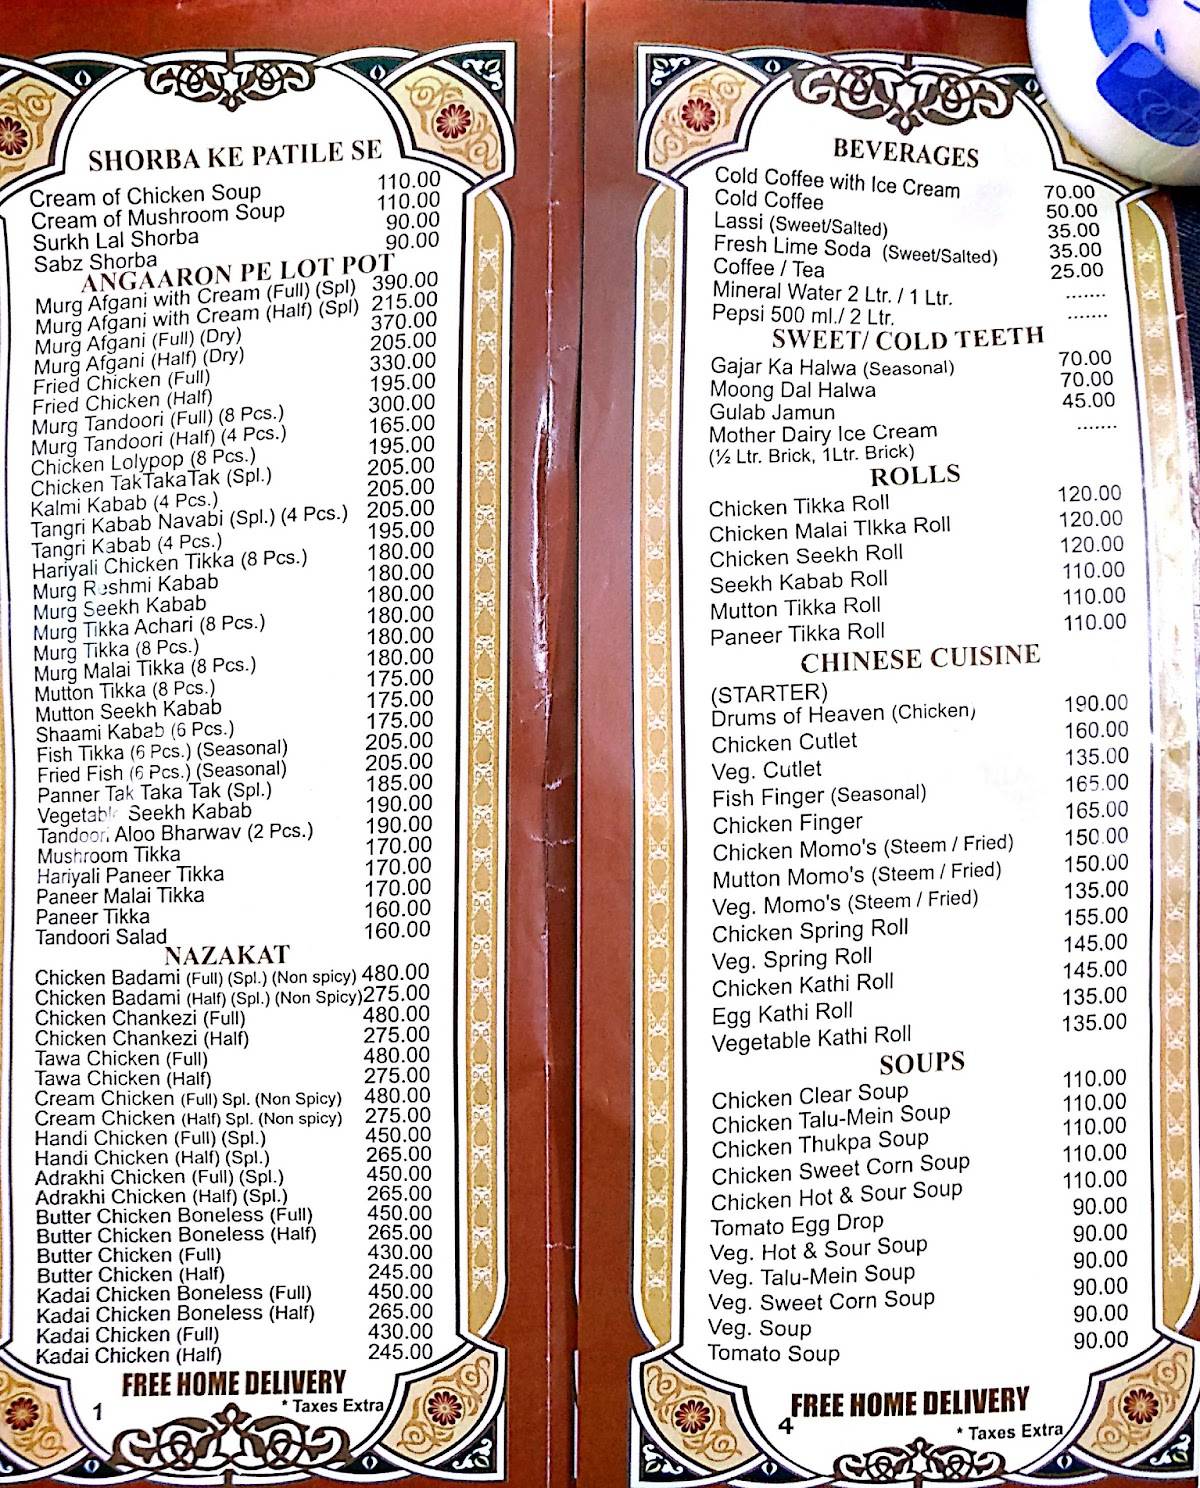 SHORBA KE PATILE SE
Cream of Chicken Soup 110.00
Cream of Mushroom Soup 110.00
Surkh Lal Shorba 90.00
Sabz Shorba 90.00
ANGAARON PE LOT POT
Murg Afgani with Cream (Full) (Spl) 390.00
Murg Afgani with Cream (Half) (Spl) 215.00
Murg Afgani (Full) (Dry) 370.00
Murg Afgani (Half) (Dry) 205.00
Fried Chicken (Full) 330.00
Fried Chicken (Half) 195.00
Murg Tandoori (Full) (8 Pcs.) 300.00
Murg Tandoori (Half) (4 Pcs.) 165.00
Chicken Lolypop (8 Pcs.) 195.00
Chicken TakTakaTak (Spl.) 205.00
Kalmi Kabab (4 Pcs.) 205.00
Tangri Kabab Navabi (Spl.) (4 Pcs.) 205.00
Tangri Kabab (4 Pcs.) 195.00
Hariyali Chicken Tikka (8 Pcs.) 180.00
Murg Reshmi Kabab 180.00
Murg Seekh Kabab 180.00
Murg Tikka Achari (8 Pcs.) 180.00
Murg Tikka (8 Pcs.) 180.00
Murg Malai Tikka (8 Pcs.) 180.00
Mutton Tikka (8 Pcs.) 175.00
Mutton Seekh Kabab 175.00
Shaami Kabab (6 Pcs.) 175.00
Fish Tikka (6 Pcs.) (Seasonal) 205.00
Fried Fish (6 Pcs.) (Seasonal) 205.00
Panner Tak Taka Tak (Spl.) 185.00
Vegetable Seekh Kabab 190.00
Tandoori Aloo Bharwav (2 Pcs.) 190.00
Mushroom Tikka 170.00
Hariyali Paneer Tikka 170.00
Paneer Malai Tikka 170.00
Paneer Tikka 160.00
Tandoori Salad 160.00
NAZAKAT
Chicken Badami (Full) (Spl.) (Non spicy) 480.00
Chicken Badami (Half) (Spl.) (Non Spicy) 275.00
Chicken Chankezi (Full) 480.00
Chicken Chankezi (Half) 275.00
Tawa Chicken (Full) 480.00
Tawa Chicken (Half) 275.00
Cream Chicken (Full) Spl. (Non Spicy) 480.00
Cream Chicken (Half) Spl. (Non spicy) 275.00
Handi Chicken (Full) (Spl.) 450.00
Handi Chicken (Half) (Spl.) 265.00
Adrakhi Chicken (Full) (Spl.) 450.00
Adrakhi Chicken (Half) (Spl.) 265.00
Butter Chicken Boneless (Full) 450.00
Butter Chicken Boneless (Half) 265.00
Butter Chicken (Full) 430.00
Butter Chicken (Half) 245.00
Kadai Chicken Boneless (Full) 450.00
Kadai Chicken Boneless (Half) 265.00
Kadai Chicken (Full) 430.00
Kadai Chicken (Half) 245.00
FREE HOME DELIVERY
1 * Taxes Extra
BEVERAGES
Cold Coffee with Ice Cream 70.00
Cold Coffee 50.00
Lassi (Sweet/Salted) 35.00
Fresh Lime Soda (Sweet/Salted) 35.00
Coffee / Tea 25.00
Mineral Water 2 Ltr. / 1 Ltr. .......
Pepsi 500 ml./ 2 Ltr. .......
SWEET/ COLD TEETH
Gajar Ka Halwa (Seasonal) 70.00
Moong Dal Halwa 70.00
Gulab Jamun 45.00
Mother Dairy Ice Cream .......
(½ Ltr. Brick, 1Ltr. Brick)
ROLLS
Chicken Tikka Roll 120.00
Chicken Malai TIkka Roll 120.00
Chicken Seekh Roll 120.00
Seekh Kabab Roll 110.00
Mutton Tikka Roll 110.00
Paneer Tikka Roll 110.00
CHINESE CUISINE
(STARTER)
Drums of Heaven (Chicken) 190.00
Chicken Cutlet 160.00
Veg. Cutlet 135.00
Fish Finger (Seasonal) 165.00
Chicken Finger 165.00
Chicken Momo's (Steem / Fried) 150.00
Mutton Momo's (Steem / Fried) 150.00
Veg. Momo's (Steem / Fried) 135.00
Chicken Spring Roll 155.00
Veg. Spring Roll 145.00
Chicken Kathi Roll 145.00
Egg Kathi Roll 135.00
Vegetable Kathi Roll 135.00
SOUPS
Chicken Clear Soup 110.00
Chicken Talu-Mein Soup 110.00
Chicken Thukpa Soup 110.00
Chicken Sweet Corn Soup 110.00
Chicken Hot & Sour Soup 110.00
Tomato Egg Drop 90.00
Veg. Hot & Sour Soup 90.00
Veg. Talu-Mein Soup 90.00
Veg. Sweet Corn Soup 90.00
Veg. Soup 90.00
Tomato Soup 90.00
4 FREE HOME DELIVERY
* Taxes Extra